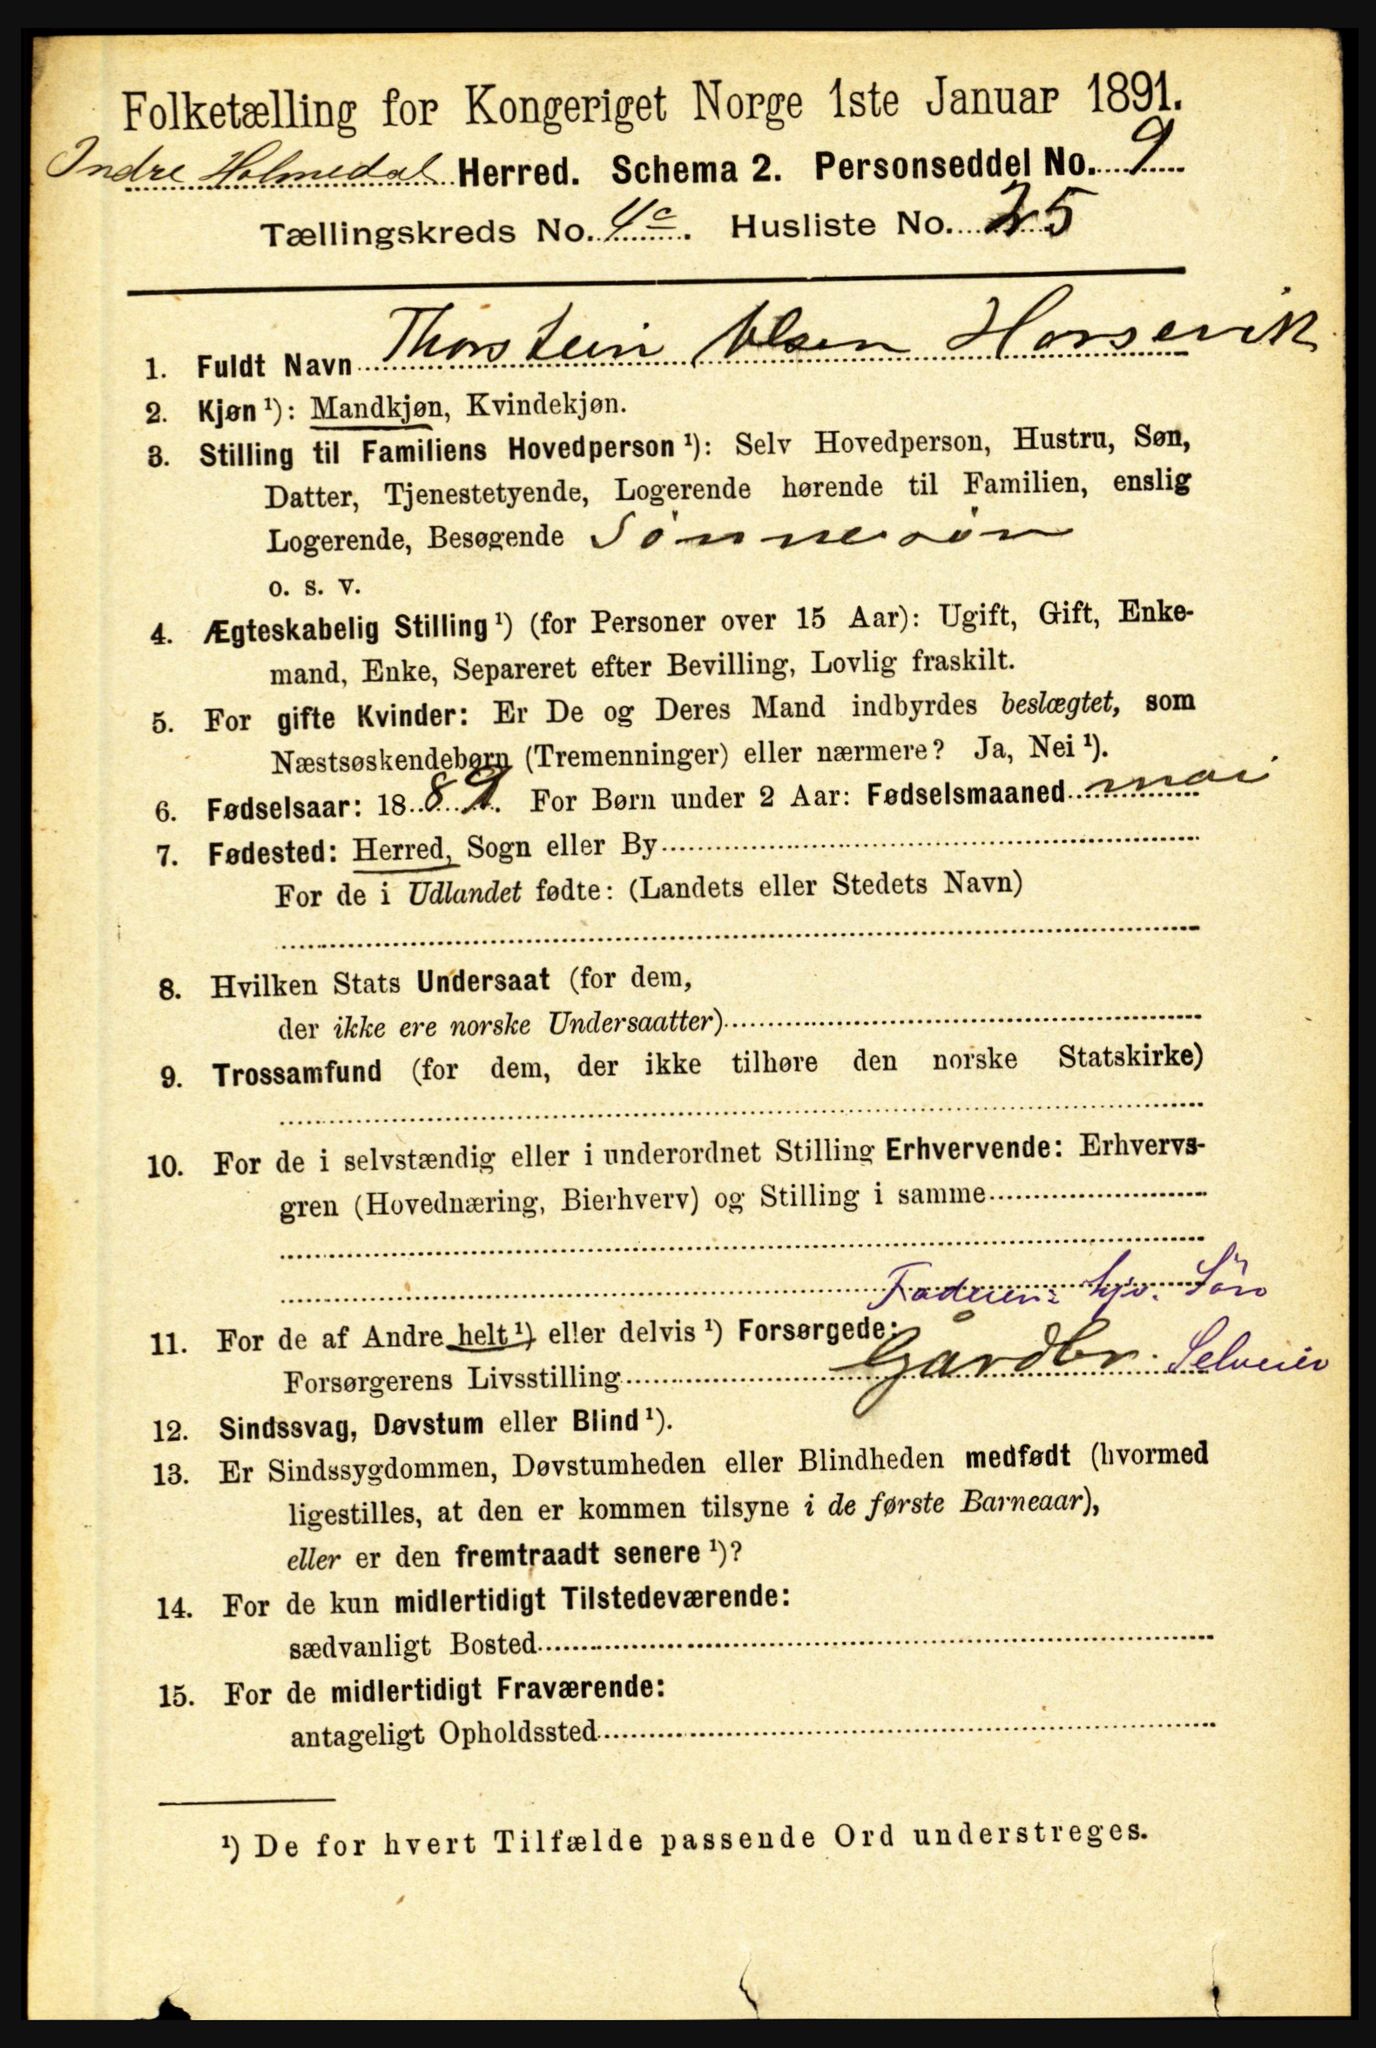 Folketælling for Kongeriget Norge 1ste Januar 1891.
Indre Holmedal Herred. Schema 2. Personseddel No. 9
Tællingskreds No. 4c. Husliste No. 25
1. Fuldt Navn Thorstein Olsen Horsevik
2. Kjøn ¹): Mandkjøn, Kvindekjøn.
3. Stilling til Familiens Hovedperson ¹): Selv Hovedperson, Hustru, Søn,
Datter, Tjenestetyende, Logerende hørende til Familien, enslig
Logerende, Besøgende Sønnesøn
o. s. v.
4. Ægteskabelig Stilling ¹) (for Personer over 15 Aar): Ugift, Gift, Enke-
mand, Enke, Separeret efter Bevilling, Lovlig fraskilt.
5. For gifte Kvinder: Er De og Deres Mand indbyrdes beslægtet, som
Næstsøskendebørn (Tremenninger) eller nærmere? Ja, Nei ¹).
6. Fødselsaar: 1889. For Børn under 2 Aar: Fødselsmaaned mai
7. Fødested: Herred, Sogn eller By
For de i Udlandet fødte: (Landets eller Stedets Navn)
8. Hvilken Stats Undersaat (for dem,
der ikke ere norske Undersaatter)
9. Trossamfund (for dem, der ikke tilhøre den norske Statskirke)
10. For de i selvstændig eller i underordnet Stilling Erhvervende: Erhvervs-
gren (Hovednæring, Bierhverv) og Stilling i samme
Faderen: hjv. Søn
11. For de af Andre helt ¹) eller delvis ¹) Forsørgede:
Forsørgerens Livsstilling Gårdbr. Selveier
12. Sindssvag, Døvstum eller Blind ¹).
13. Er Sindssygdommen, Døvstumheden eller Blindheden medfødt (hvormed
ligestilles, at den er kommen tilsyne i de første Barneaar),
eller er den fremtraadt senere ¹)?
14. For de kun midlertidigt Tilstedeværende:
sædvanligt Bosted
15. For de midlertidigt Fraværende:
antageligt Opholdssted
¹) De for hvert Tilfælde passende Ord understreges.